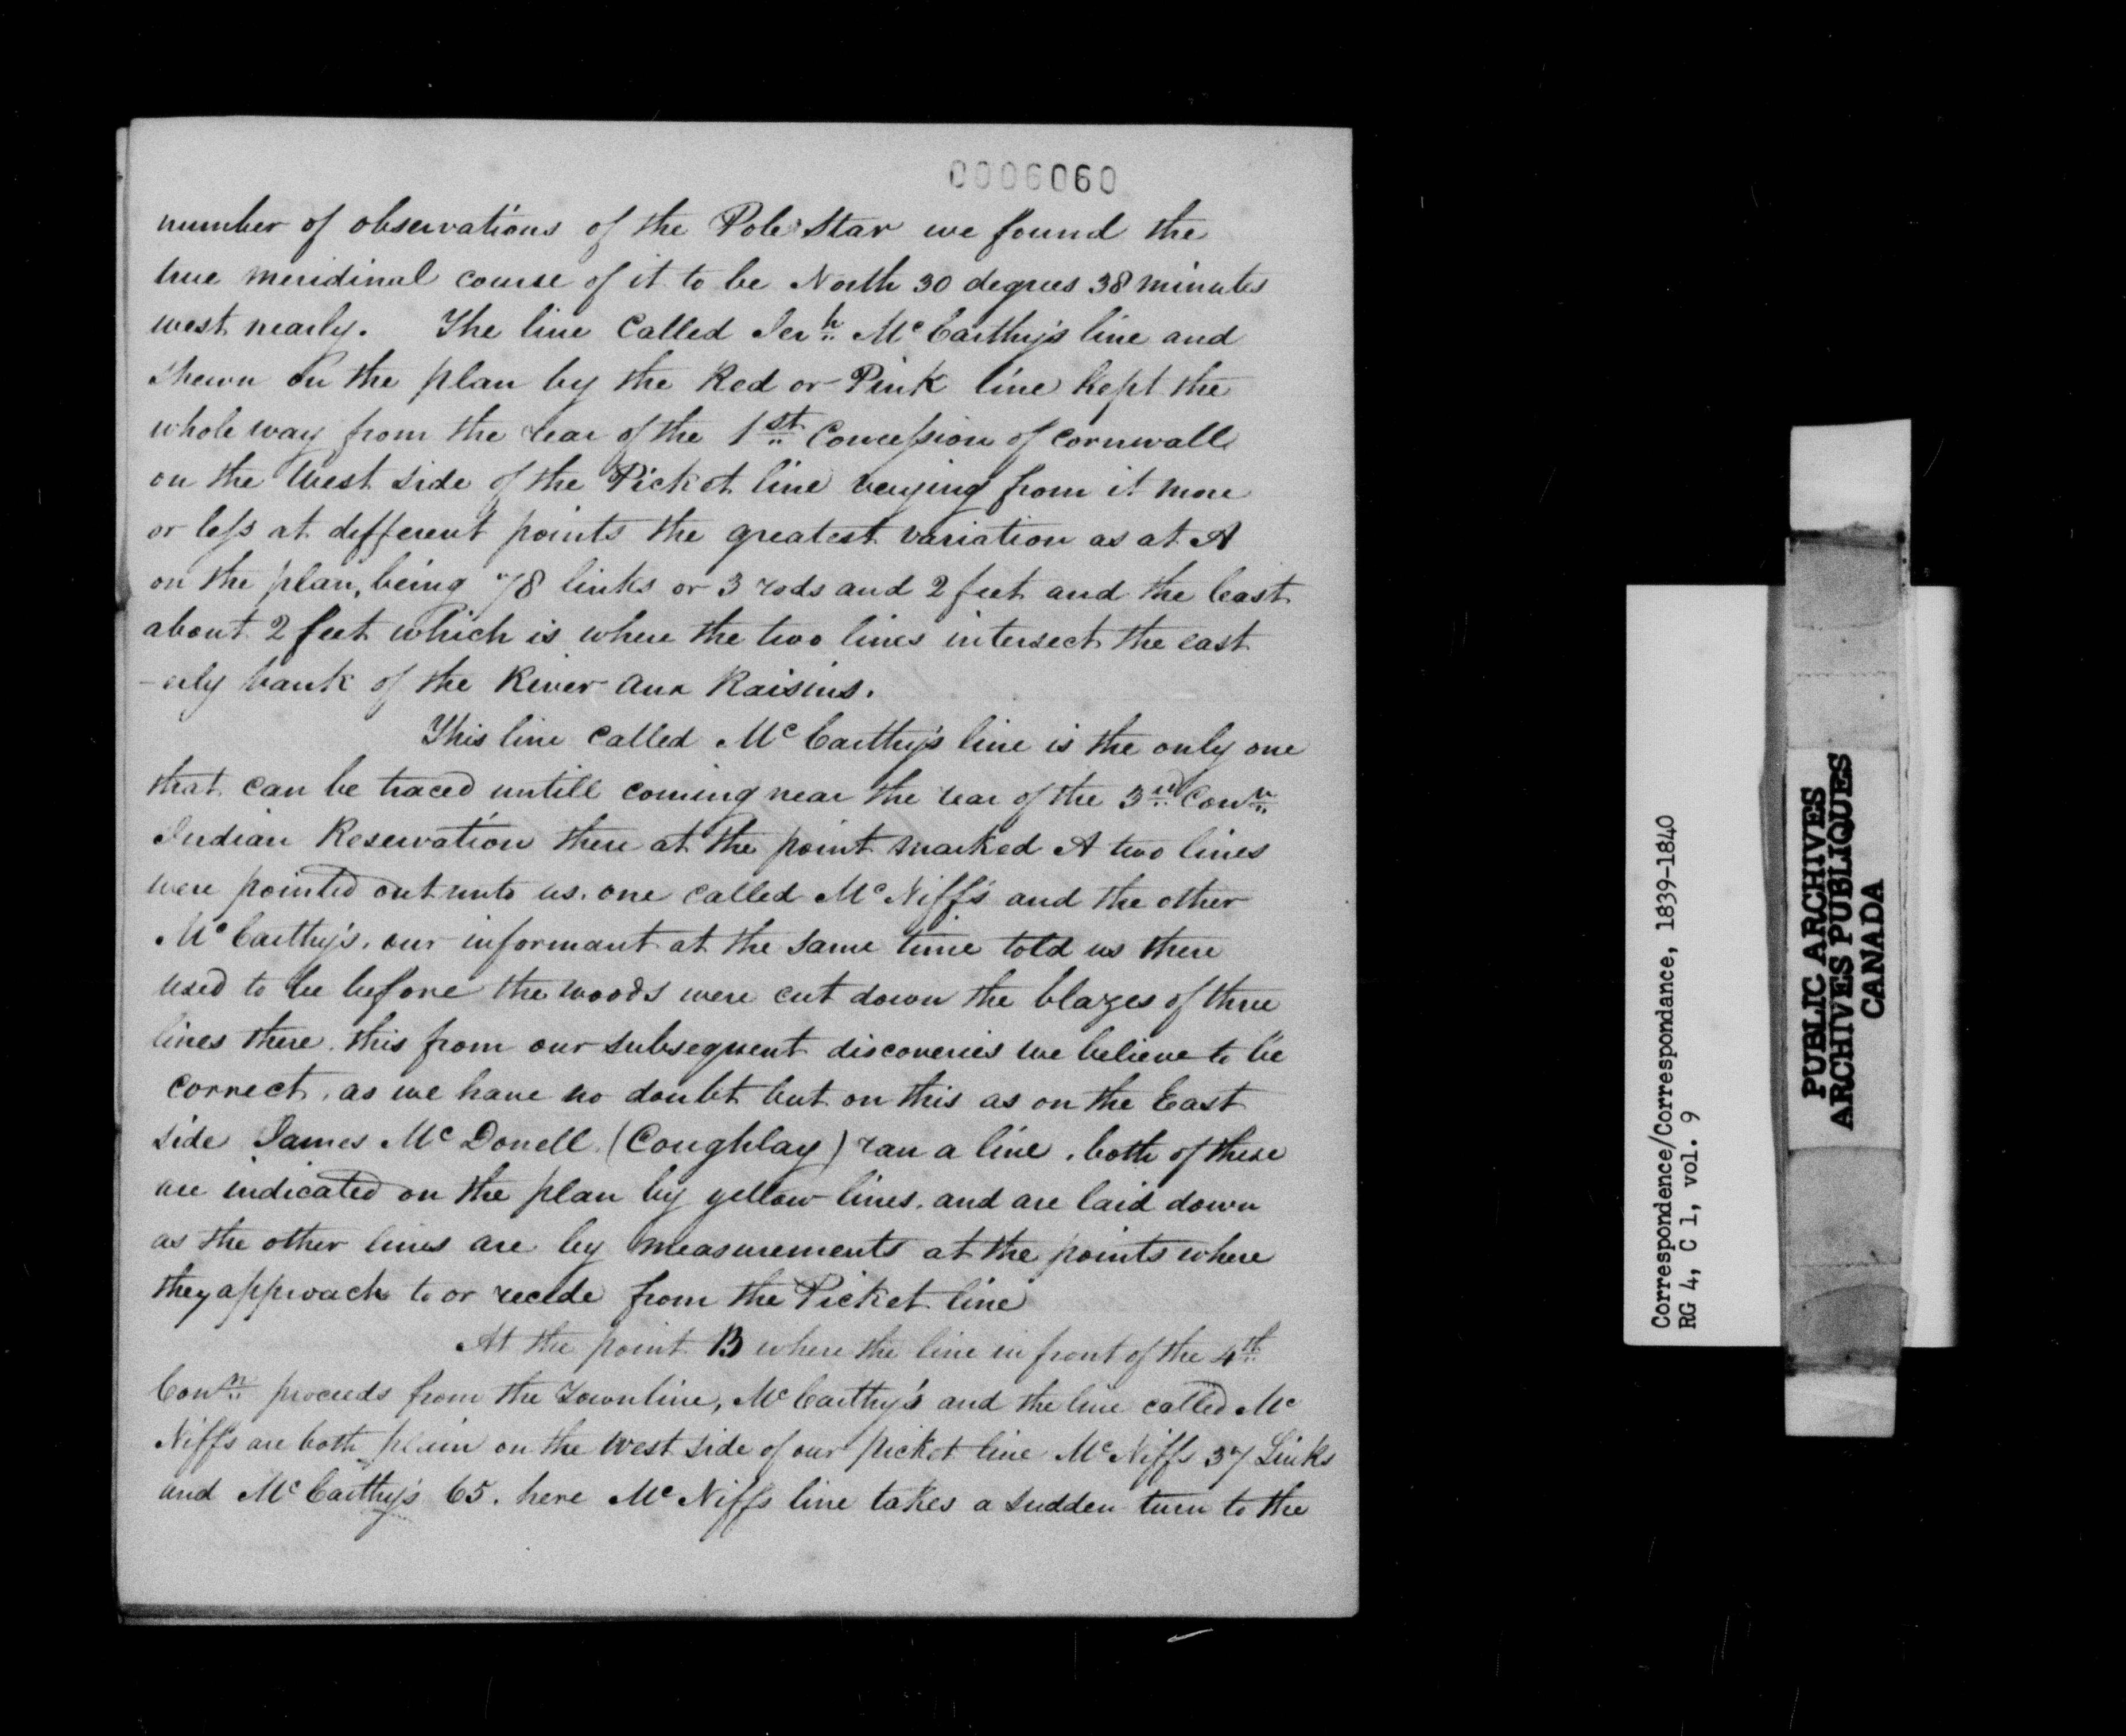 0006060
number of observations of the Pole Star we found the
true meridinal course of it to be North 30 degrees 38 minutes
west nearly. The line Called Jerh McCarthy's line and
shewn on the plan by the Red or Pink line kept the
whole way from the rear of the 1st Concession of Cornwall
on the West side of the Picket line verying from it more
or less at different points the greatest variation as at A
on the plan, being 78 links or 3 rods and 2 feet and the least
about 2 feet which is where the two lines intersect the east
-erly bank of the River aux Raisins.
This line called McCarthy's line is the only one
that can be traced untill coming near the rear of the 3rd Conn
Indian Reservation there at the point marked A two lines
were pointed out unto us. one called McNiff's and the other
McCarthy's. our informant at the same time told us there
used to be before the woods were cut down the blazes of three
lines there. this from our subsequent discoveries we believe to be
correct, as we have no doubt but on this as on the East
side James McDonell (Coughlay) ran a line. both of these
are indicated on the plan by yellow lines. and are laid down
as the other lines are by measurements at the points where
they approach to or recede from the Picket line
At the point B where the line in front of the 4th
Conn proceeds from the Townline, McCarthy's and the line called Mc
Niff's are both plain on the West side of our picket line McNiffs 37 Links
and McCarthy's 65. here McNiffs line takes a sudden turn to the
Correspondence/Correspondance, 1839-1840
RG 4, C 1, vol. 9
PUBLIC ARCHIVES
ARCHIVES PUBLIQUES
CANADA